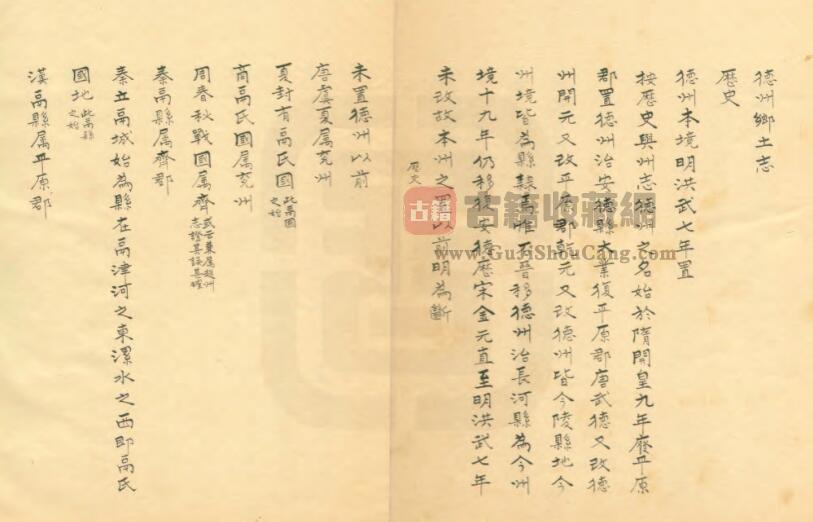 德州鄉土志
歷史
德州本境明洪武七年置
按歷史與州志德州之名始於隋開皇九年廢平原
郡置德州治安德縣大業復平原郡唐武德又改德
州開元又改平原郡乾元又改德州皆今陵縣地今
州境皆為縣隸焉惟石晉移德州治長河縣為今州
境十九年仍移復安德歷宋金元直至明洪武七年
未改故本州之置以前明為斷
歷史
未置德州以前
唐虞夏屬兗州
夏封有鬲氏國此鬲國之始
商鬲氏國屬兗州
周春秋戰國屬齊或云兼屬趙州志證其誤
秦鬲縣屬齊郡
秦立鬲城始為縣在鬲津河之東漯水之西即鬲氏
國地此鬲縣之始
漢鬲縣屬平原郡
古籍
古籍收藏網
www.GuJiShouCang.com